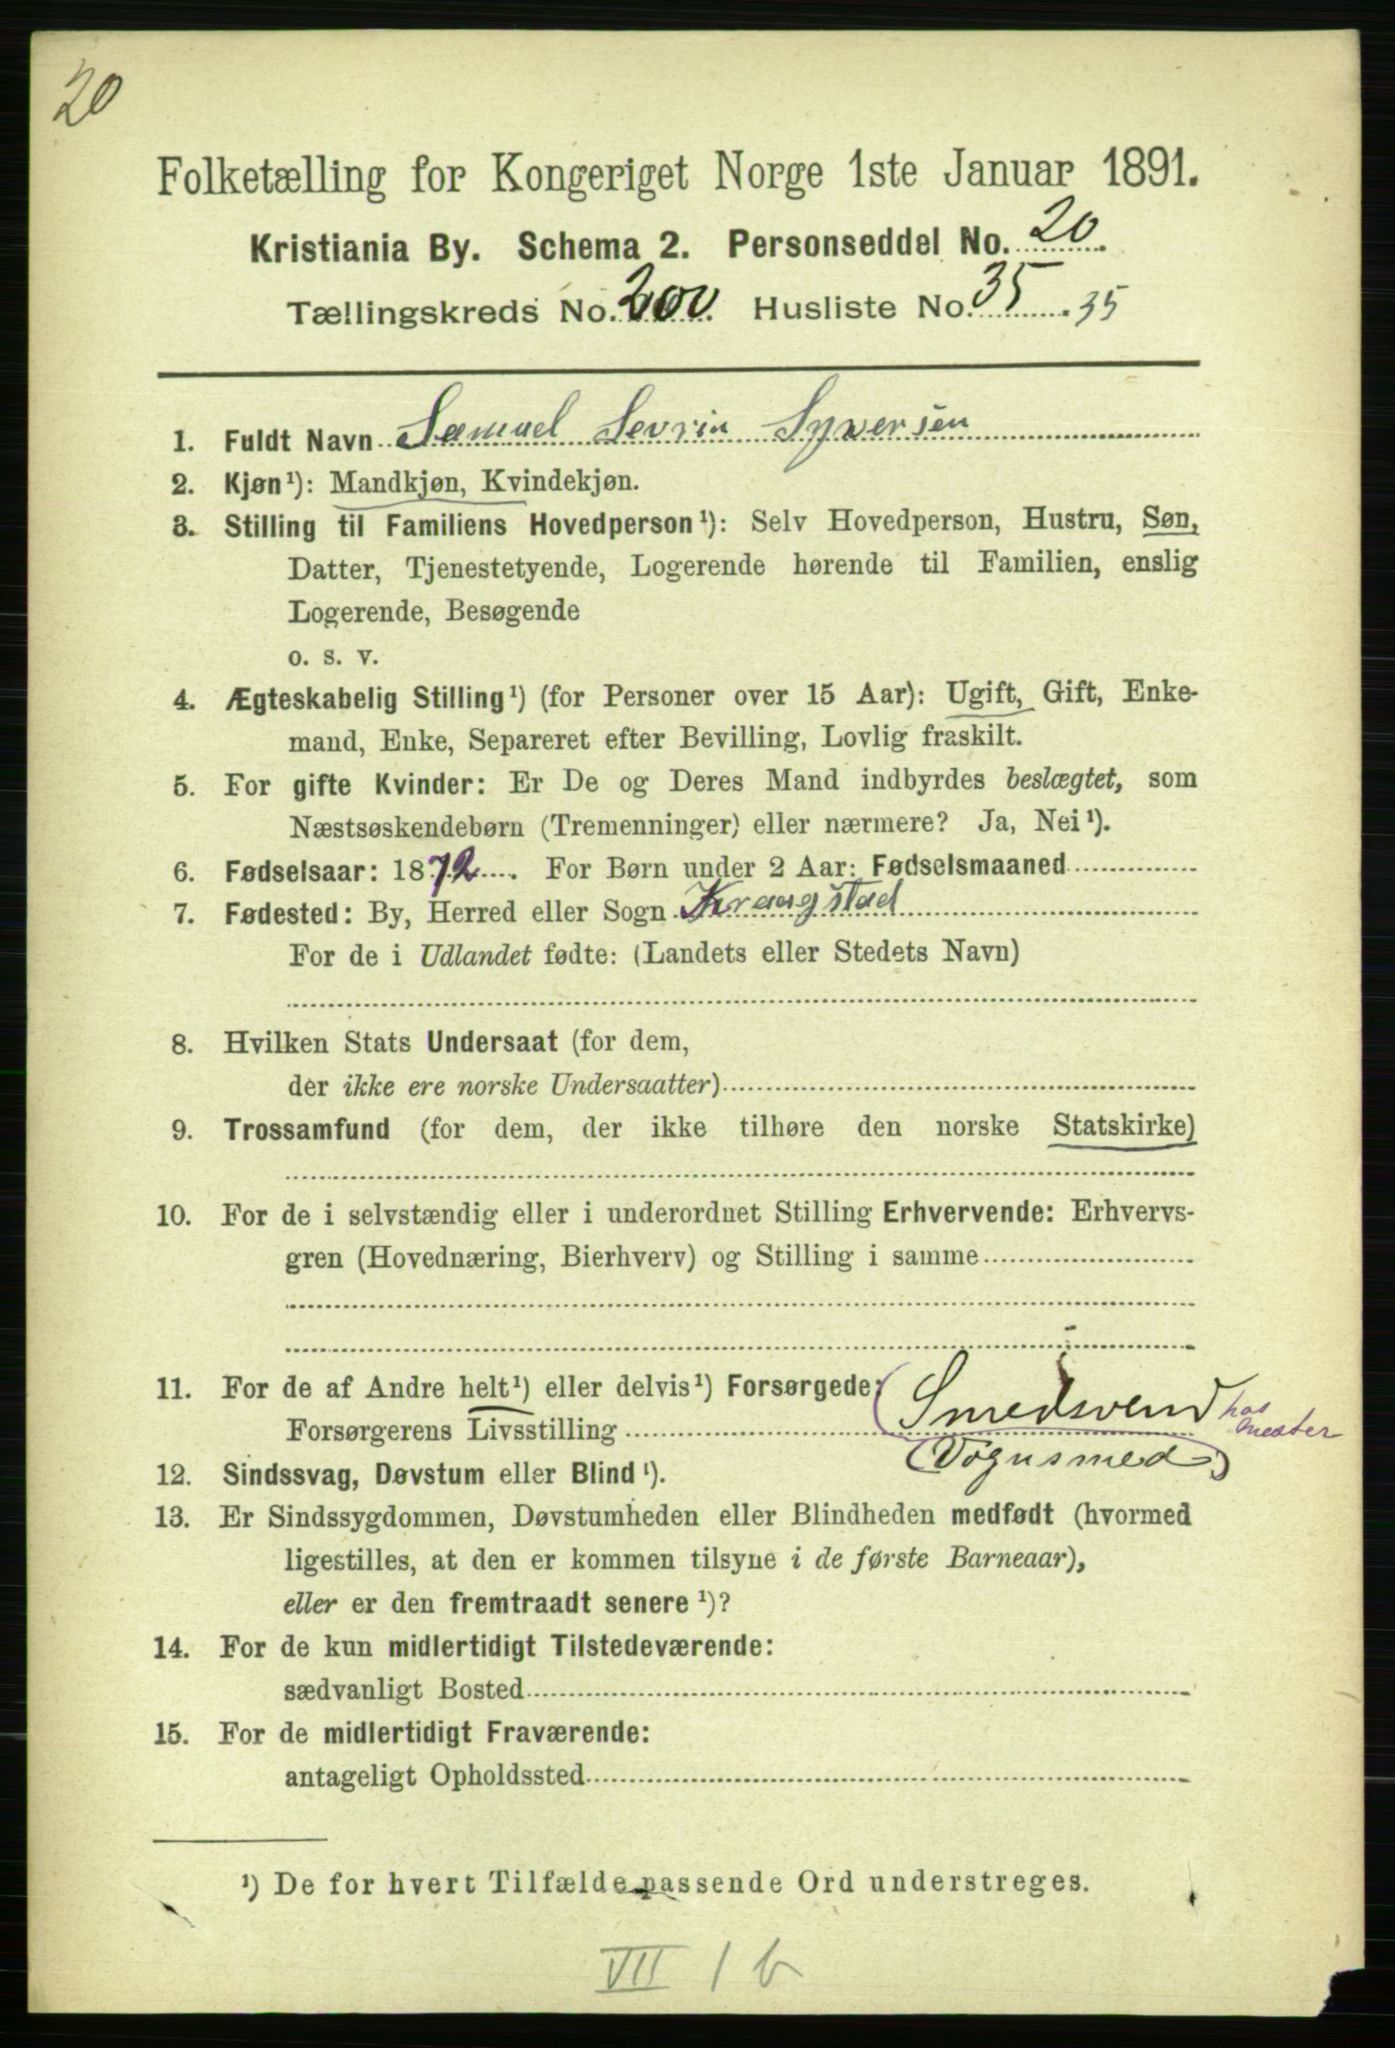 20
Folketælling for Kongeriget Norge 1ste Januar 1891.
Kristiania By. Schema 2. Personseddel No. 20.
Tællingskreds No. 200. Husliste No. 35. 35
1. Fuldt Navn Samuel Sevrin Syversen
2. Kjøn¹): Mandkjøn, Kvindekjøn.
3. Stilling til Familiens Hovedperson¹): Selv Hovedperson, Hustru, Søn,
Datter, Tjenestetyende, Logerende hørende til Familien, enslig
Logerende, Besøgende
o. s. v.
4. Ægteskabelig Stilling¹) (for Personer over 15 Aar): Ugift, Gift, Enke-
mand, Enke, Separeret efter Bevilling, Lovlig fraskilt.
5. For gifte Kvinder: Er De og Deres Mand indbyrdes beslægtet, som
Næstsøskendebørn (Tremenninger) eller nærmere? Ja, Nei¹).
6. Fødselsaar: 1872. For Børn under 2 Aar: Fødselsmaaned
7. Fødested: By, Herred eller Sogn Kraagstad
For de i Udlandet fødte: (Landets eller Stedets Navn)
8. Hvilken Stats Undersaat (for dem,
der ikke ere norske Undersaatter)
9. Trossamfund (for dem, der ikke tilhøre den norske Statskirke)
10. For de i selvstændig eller i underordnet Stilling Erhvervende: Erhvervs-
gren (Hovednæring, Bierhverv) og Stilling i samme
11. For de af Andre helt¹) eller delvis¹) Forsørgede:
Forsørgerens Livsstilling Smedsvend hos Mester
(Vognsmed)
12. Sindssvag, Døvstum eller Blind¹).
13. Er Sindssygdommen, Døvstumheden eller Blindheden medfødt (hvormed
ligestilles, at den er kommen tilsyne i de første Barneaar),
eller er den fremtraadt senere¹)?
14. For de kun midlertidigt Tilstedeværende:
sædvanligt Bosted
15. For de midlertidigt Fraværende:
antageligt Opholdssted
¹) De for hvert Tilfælde passende Ord understreges.
VII 1 b